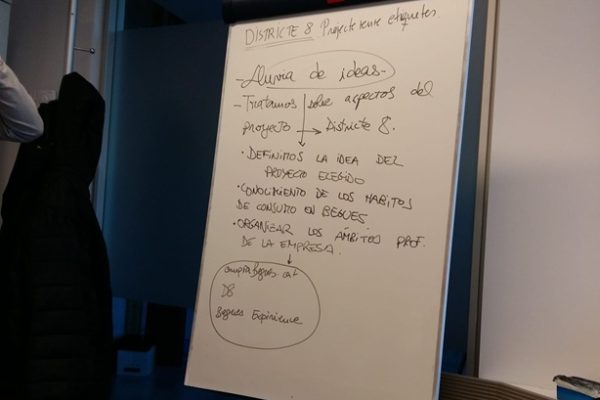 DISTRICTE 8 Projecte etiquetes
- Lluvia de ideas -
- Tratamos sobre aspectos del
proyecto → Districte 8.
• DEFINIMOS LA IDEA DEL
PROYECTO ELEGIDO
• CONOCIMIENTO DE LOS HABITOS
DE CONSUMO EN BEGUES.
• ORGANIZAR LOS ÁMBITOS PROF.
DE LA EMPRESA.
compraBegues.cat
D8
Begues Experience